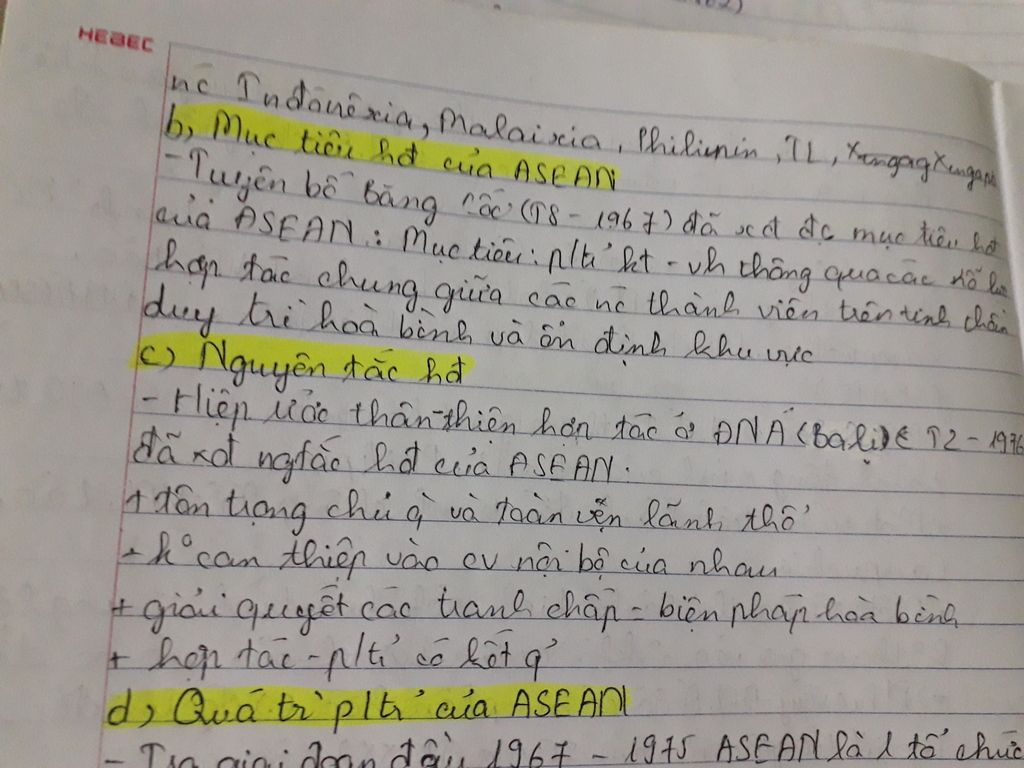 HEBEC
nc Inđônêxia, Malaixia, Philipin, TL, Xingapo
b, Mục tiêu hđ của ASEAN
- Tuyên bố Băng Cốc (T8 - 1967) đã xđ đc mục tiêu hđ
của ASEAN : Mục tiêu : p/tr' kt - vh thông qua các nỗ lực
hợp tác chung giữa các nc thành viên trên tinh thần
duy trì hoà bình và ổn định khu vực
c) Nguyên tắc hđ
- Hiệp ước thân thiện hợp tác ở ĐNÁ (Bali) T2 - 1976
đã xđ ngtắc hđ của ASEAN.
+ tôn trọng chủ q` và toàn vẹn lãnh thổ
+ k° can thiệp vào cv nội bộ của nhau
+ giải quyết các tranh chấp = biện pháp hoà bình
+ hợp tác - p/tr' có kết q'
d, Quá tr` p/tr' của ASEAN
- Trg giai đoạn đầu 1967 - 1975 ASEAN là 1 tổ chức